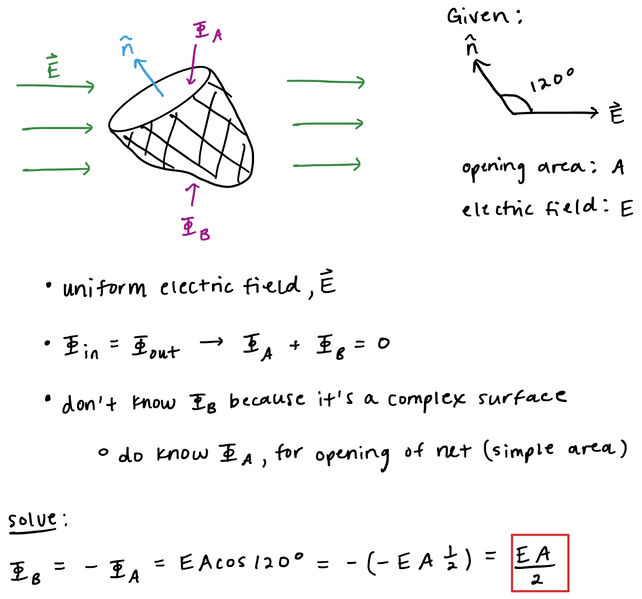 Given:
n̂
Φ_A
E⃗
n̂
120°
E⃗
opening area: A
electric field: E
Φ_B
• uniform electric field, E⃗
• Φ_in = Φ_out → Φ_A + Φ_B = 0
• don't know Φ_B because it's a complex surface
○ do know Φ_A, for opening of net (simple area)
solve:
Φ_B = - Φ_A = EAcos120° = -(-EA 1/2) = EA/2